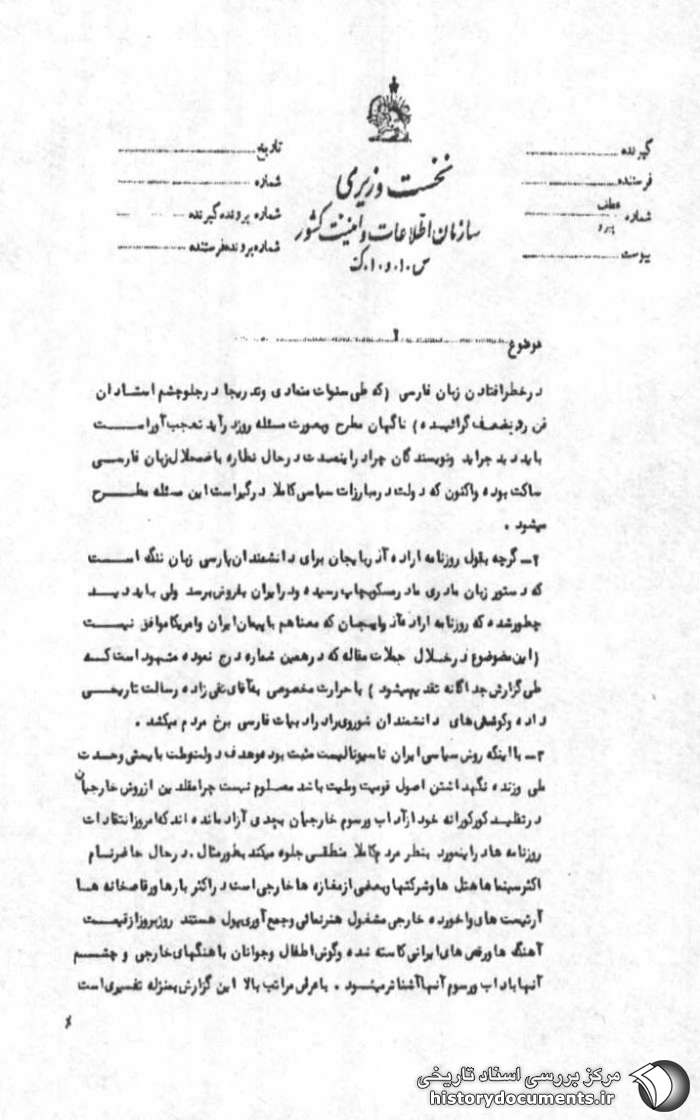 گیرنده
فرستنده
شماره عطف
پیرو
پیوست
نخست وزیری
سازمان اطلاعات و امنیت کشور
س.ا.و.ا.ک
تاریخ
شماره
شماره پرونده گیرنده
شماره پرونده فرستنده
موضوع ۲
در خطر افتادن زبان فارسی (که طی سنوات متمادی و تدریجا در جلو چشم استادان
فن رو بضعف گرائیده) ناگهان مطرح و بصورت مسئله روز درآید تعجب آور است
باید دید جراید و نویسندگان چرا در اینمدت در حال نظاره باضمحلال زبان فارسی
ساکت بوده و اکنون که دولت در مبارزات سیاسی کاملا درگیر است این مسئله مطرح
میشود .
۲ـ گرچه بقول روزنامه اراده آذربایجان برای دانشمندان پارسی زبان ننگ است
که دستور زبان مادری ما در مسکو بچاپ رسیده و در ایران بفروش برسد ولی باید دید
چطور شده که روزنامه اراده آذربایجان که معنا هم با پیمان ایران و امریکا موافق نیست
(این موضوع در خلال جملات مقاله که در همین شماره درج نموده مشهود است که
طی گزارش جداگانه تقدیم میشود) با حرارت مخصوص به آقای تقی زاده رسالت تاریخی
داده و کوشش های دانشمندان شوروی را در ادبیات فارسی برخ مردم میکشد .
۳ـ با اینکه روش سیاسی ایران ناسیونالیست مثبت بوده و هدف دولت و ملت بایستی وحدت
ملی و زنده نگهداشتن اصول قومیت و ملیت باشد معلوم نیست چرا مقلدین از روش خارجیان
در تقلید کورکورانه خود از آداب و رسوم خارجیان بحدی آزاد مانده اند که امروز انتقادات
روزنامه ها در اینمورد بنظر مردم کاملا منطقی جلوه میکند بطور مثال . در حال حاضر نام
اکثر سینماها هتل ها و شرکتها و بعضی از مغازه ها خارجی است در اکثر بارها و رقاصخانه ها
آرتیست های واخورده خارجی مشغول هنرنمائی و جمع آوری پول هستند روز بروز از قیمت
آهنگ ها و رقص های ایرانی کاسته شده و گوش اطفال و جوانان با هنگهای خارجی و چشم
آنها باداب و رسوم آنها آشناتر میشود . با عرض مراتب بالا این گزارش بمنزله تفسیری است
مرکز بررسی اسناد تاریخی
historydocuments.ir